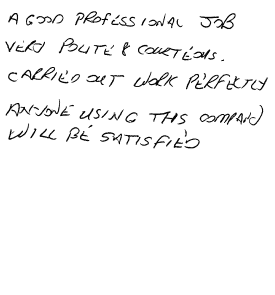 A GOOD PROFESSIONAL JOB
VERY POLITE & COURTEOUS.
CARRIED OUT WORK PERFECTLY
ANYONE USING THIS COMPANY
WILL BE SATISFIED